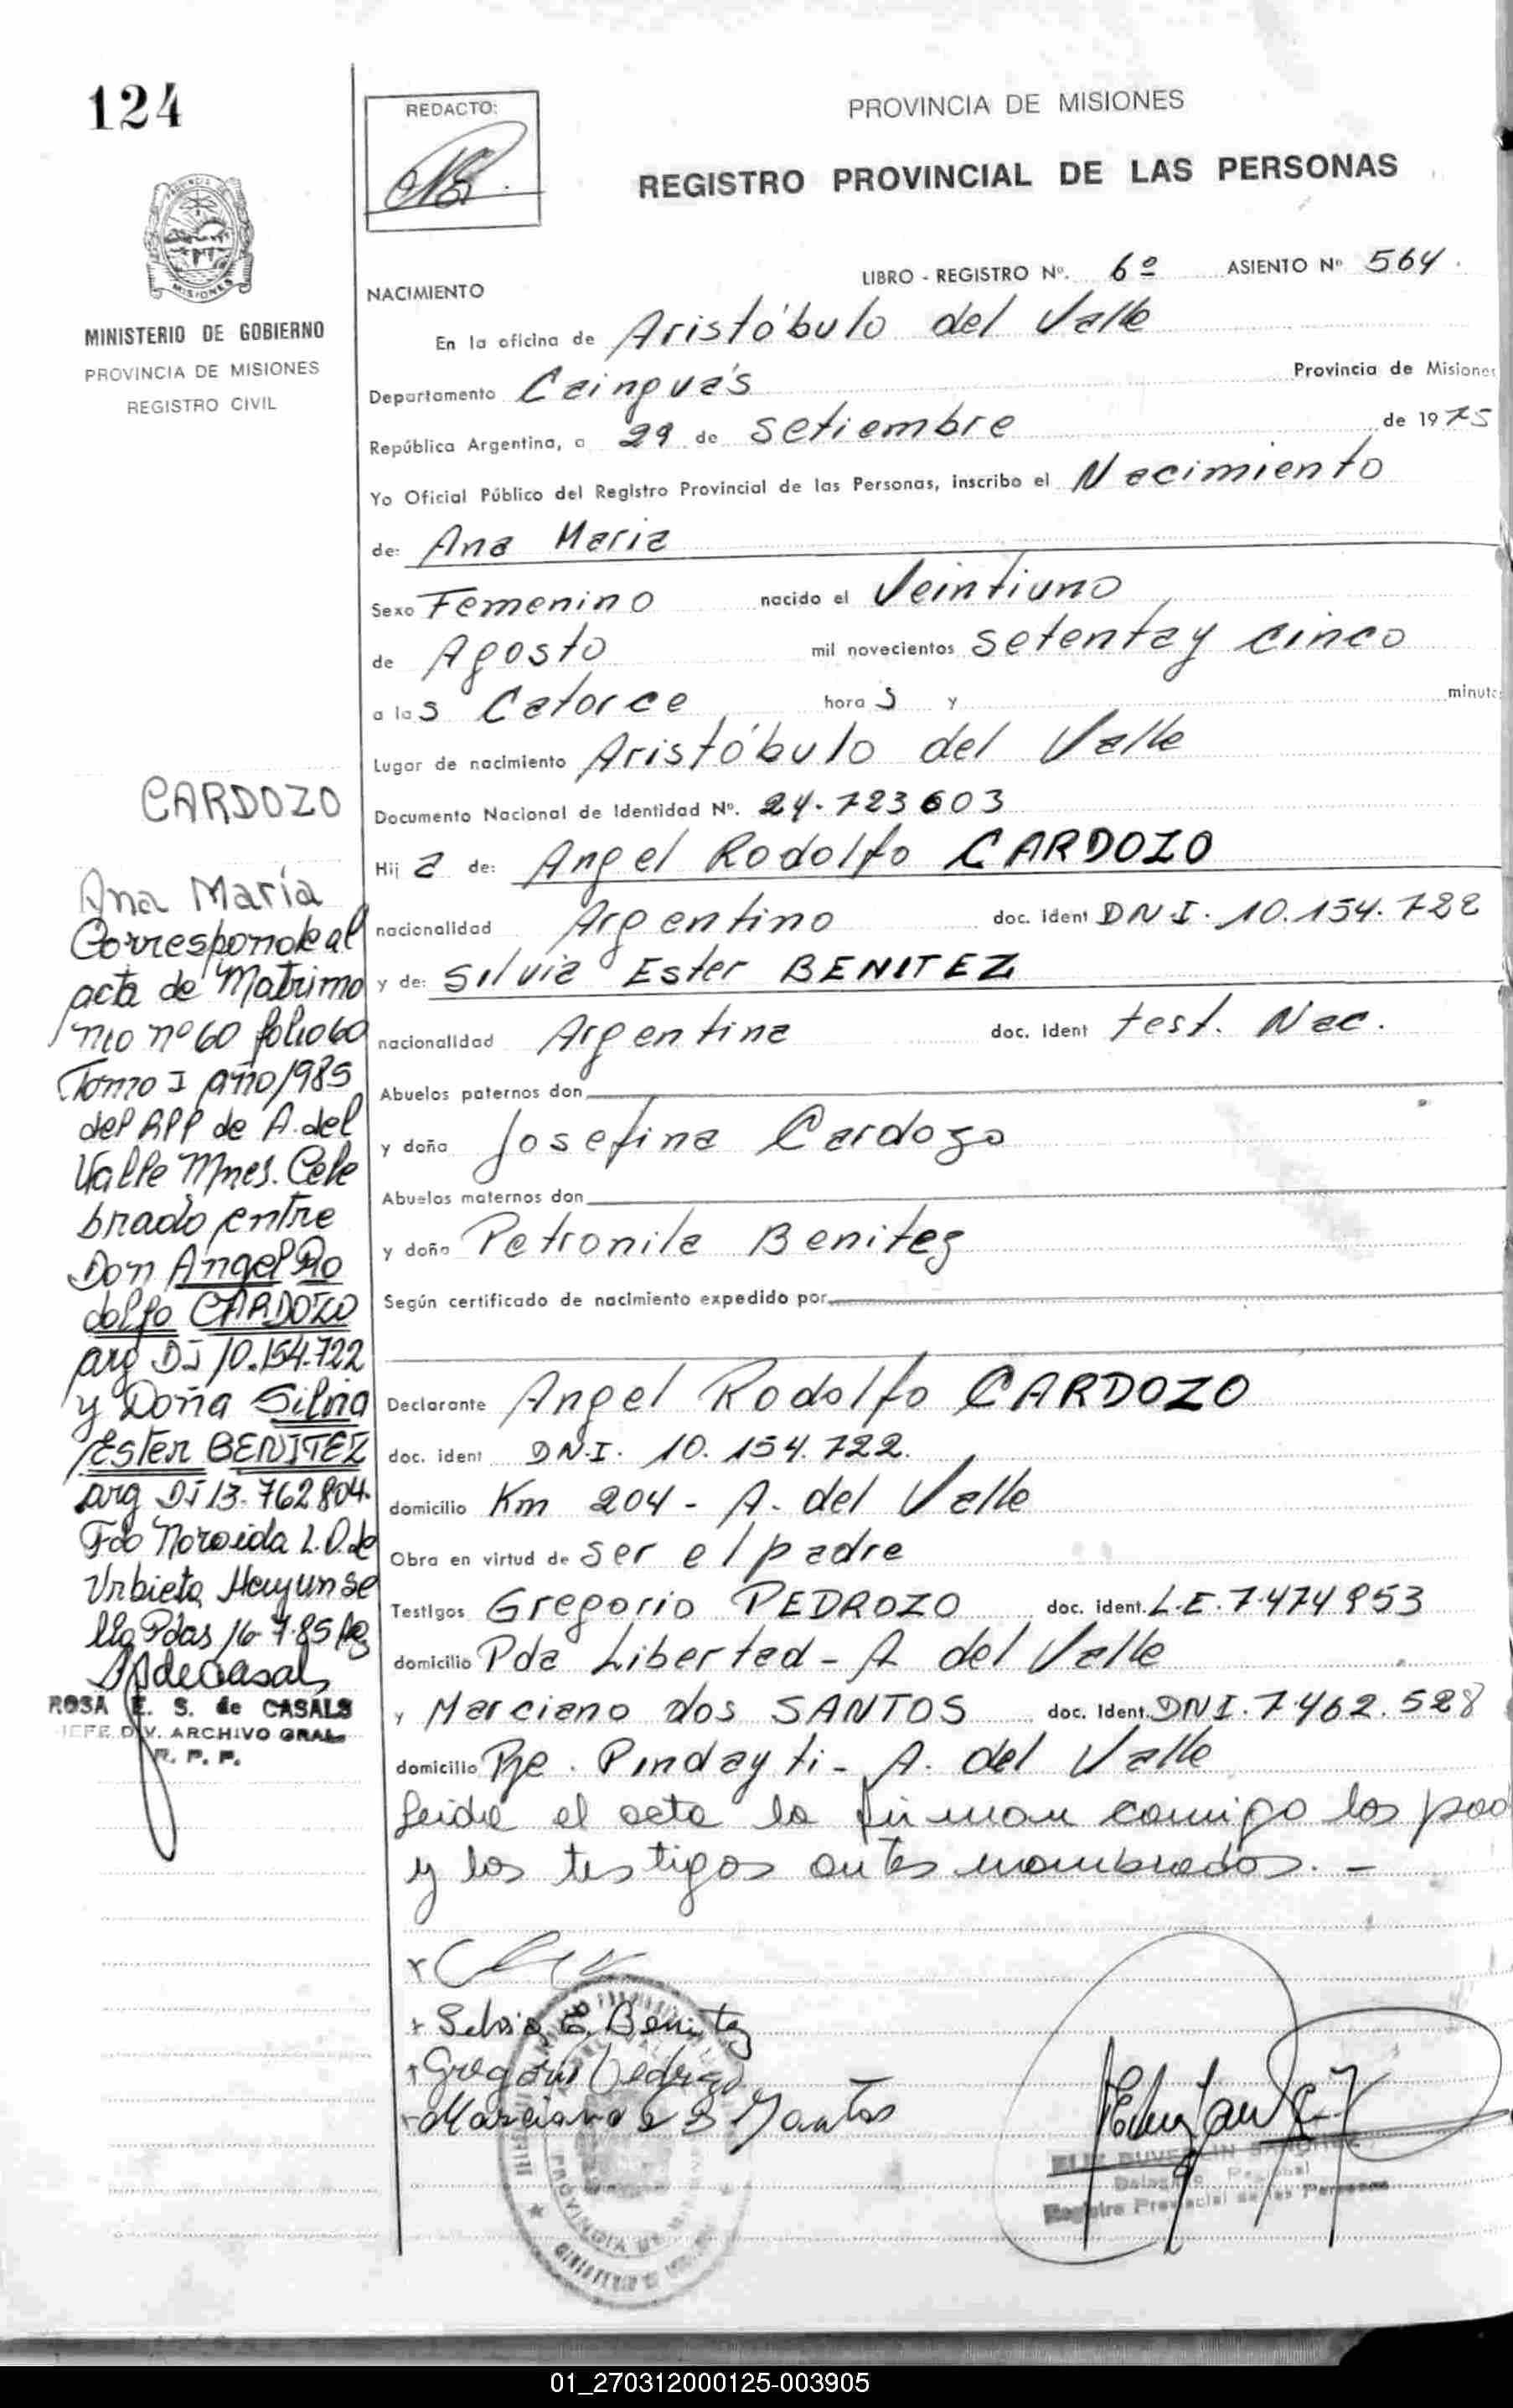 124
REDACTO:
PROVINCIA DE MISIONES
REGISTRO PROVINCIAL DE LAS PERSONAS
MISIONES
MINISTERIO DE GOBIERNO
PROVINCIA DE MISIONES
REGISTRO CIVIL
LIBRO - REGISTRO Nº. 6º ASIENTO Nº 564.
NACIMIENTO
En la oficina de Aristóbulo del Valle
Departamento Cainguás Provincia de Misiones
República Argentina, a 29 de Setiembre de 1975
Yo Oficial Público del Registro Provincial de las Personas, inscribo el Nacimiento
de: Ana Maria
Sexo Femenino nacido el Veintiuno
de Agosto mil novecientos setentay cinco
a las Catorce horas y minutos
Lugar de nacimiento Aristóbulo del Valle
Documento Nacional de Identidad Nº. 24.723603
Hija de: Angel Rodolfo CARDOZO
nacionalidad Argentino doc. ident DN.I. 10.154.722
y de: Silvia Ester BENITEZ
nacionalidad Argentina doc. ident test. Nac.
Abuelos paternos don
y doña Josefina Cardozo
Abuelos maternos don
y doña Petronila Benitez
Según certificado de nacimiento expedido por
Declarante Angel Rodolfo CARDOZO
doc. ident DN.I. 10.154.722.
domicilio Km 204 - A. del Valle
Obra en virtud de ser el padre
Testigos Gregorio PEDROZO doc. ident. L.E. 7.474953
domicilio Pda Libertad - A del Valle
y Marciano dos SANTOS doc. Ident. DNI. 7.462.528
domicilio Pje. Pindayti - A. del Valle
Leida el acta la firman comigo los pad
y los testigos antes nombrados. -
CARDOZO
Ana María
Corresponde al
acta de Matrimo
nio nº 60 folio 60
Tomo I año 1985
del RPP de A. del
Valle Mnes. Cele
brado entre
Don Angel Ro
dolfo CARDOZO
arg DJ 10.154.722
y Doña Silvia
Ester BENITEZ
arg DJ 13.762804.
Fdo L.D.de
Urbieta Hay un se
llo Pdas 16-7-85
ROSA E. S. de CASALS
JEFE DIV. ARCHIVO GRAL.
R. P. P.
Silvia E. Benitez
Gregorio Pedrozo
Marciano D S Santos
Delegado Regional
Registro Provincial de las Personas
01_270312000125-003905